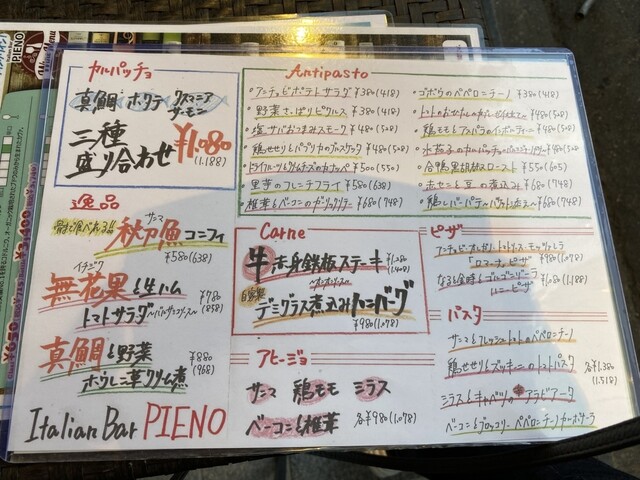 カルパッチョ
真鯛 ホタテ タスマニア
サーモン
三種
盛り合わせ ¥1,080
(1.188)
逸品
骨まで食べれる!!
サンマ
秋刀魚コンフィ
¥580(638)
イチジク
無花果と生ハム
トマトサラダ ¥780
〜バルサミコソース〜 (858)
真鯛と野菜 ¥880
ホウレン草クリーム煮 (968)
Italian Bar PIENO
Antipasto
・アンチョビポテトサラダ ¥380(418)
・野菜さっぱりピクルス ¥380(418)
・塩サバおつまみスモーク ¥480(508)
・鶏せせりとパプリカのブルスケッタ ¥480(508)
・ドライフルーツとクリームチーズのカナッペ ¥500(550)
・里芋のフレンチフライ ¥580(638)
・椎茸とベーコンのガーリックソテー ¥680(748)
・ゴボウのペペロンチーノ ¥380(418)
・鶏モモとアスパラのインボルティーニ ¥480(508)
・水茄子のカルパッチョ ¥480(508)
・合鴨黒胡椒ロースト ¥550(605)
・赤センマイと豆の煮込み ¥680(748)
・鶏レバーパテ〜バケット添え〜 ¥680(748)
Carne
牛赤身鉄板ステーキ ¥1,280
(1.408)
自家製
デミグラス煮込みハンバーグ
¥980(1.078)
アヒージョ
サンマ 鶏モモ シラス
ベーコンと椎茸 各¥980(1.078)
ピーザ
アンチョビ・オレガノ・トマトソース・モッツァレラ
「ロマーナ」ピーザ ¥980(1.078)
なると金時とゴルゴンゾーラ
ハニーピーザ ¥1,080(1.188)
パスタ
サンマとフレッシュトマトのペペロンチーノ
鶏せせりとズッキーニのトマトパスタ
各¥1.380
(1.518)
シラスとキャベツのアラビアータ
ベーコンとブロッコリー ペペロンチーノカルボナーラ
PIENO